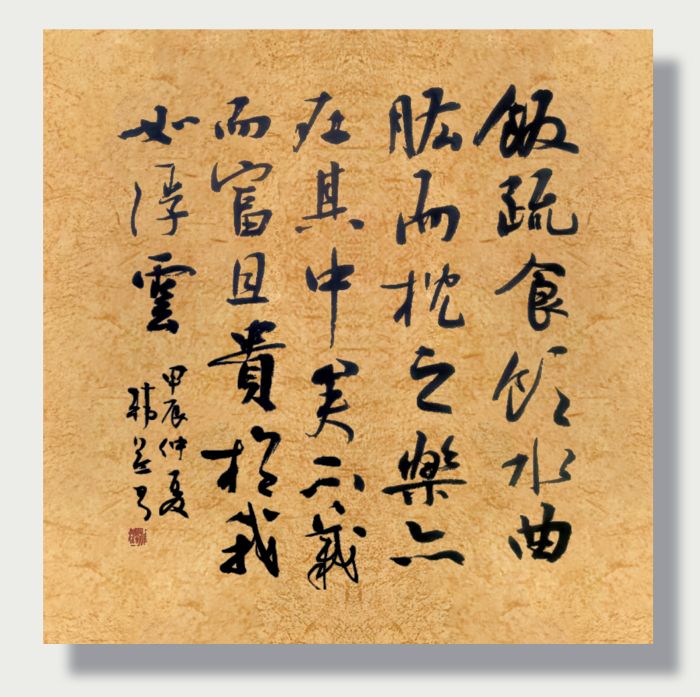 飯疏食飲水曲
肱而枕之樂亦
在其中矣不義
而富且貴於我
如浮雲
甲辰仲夏